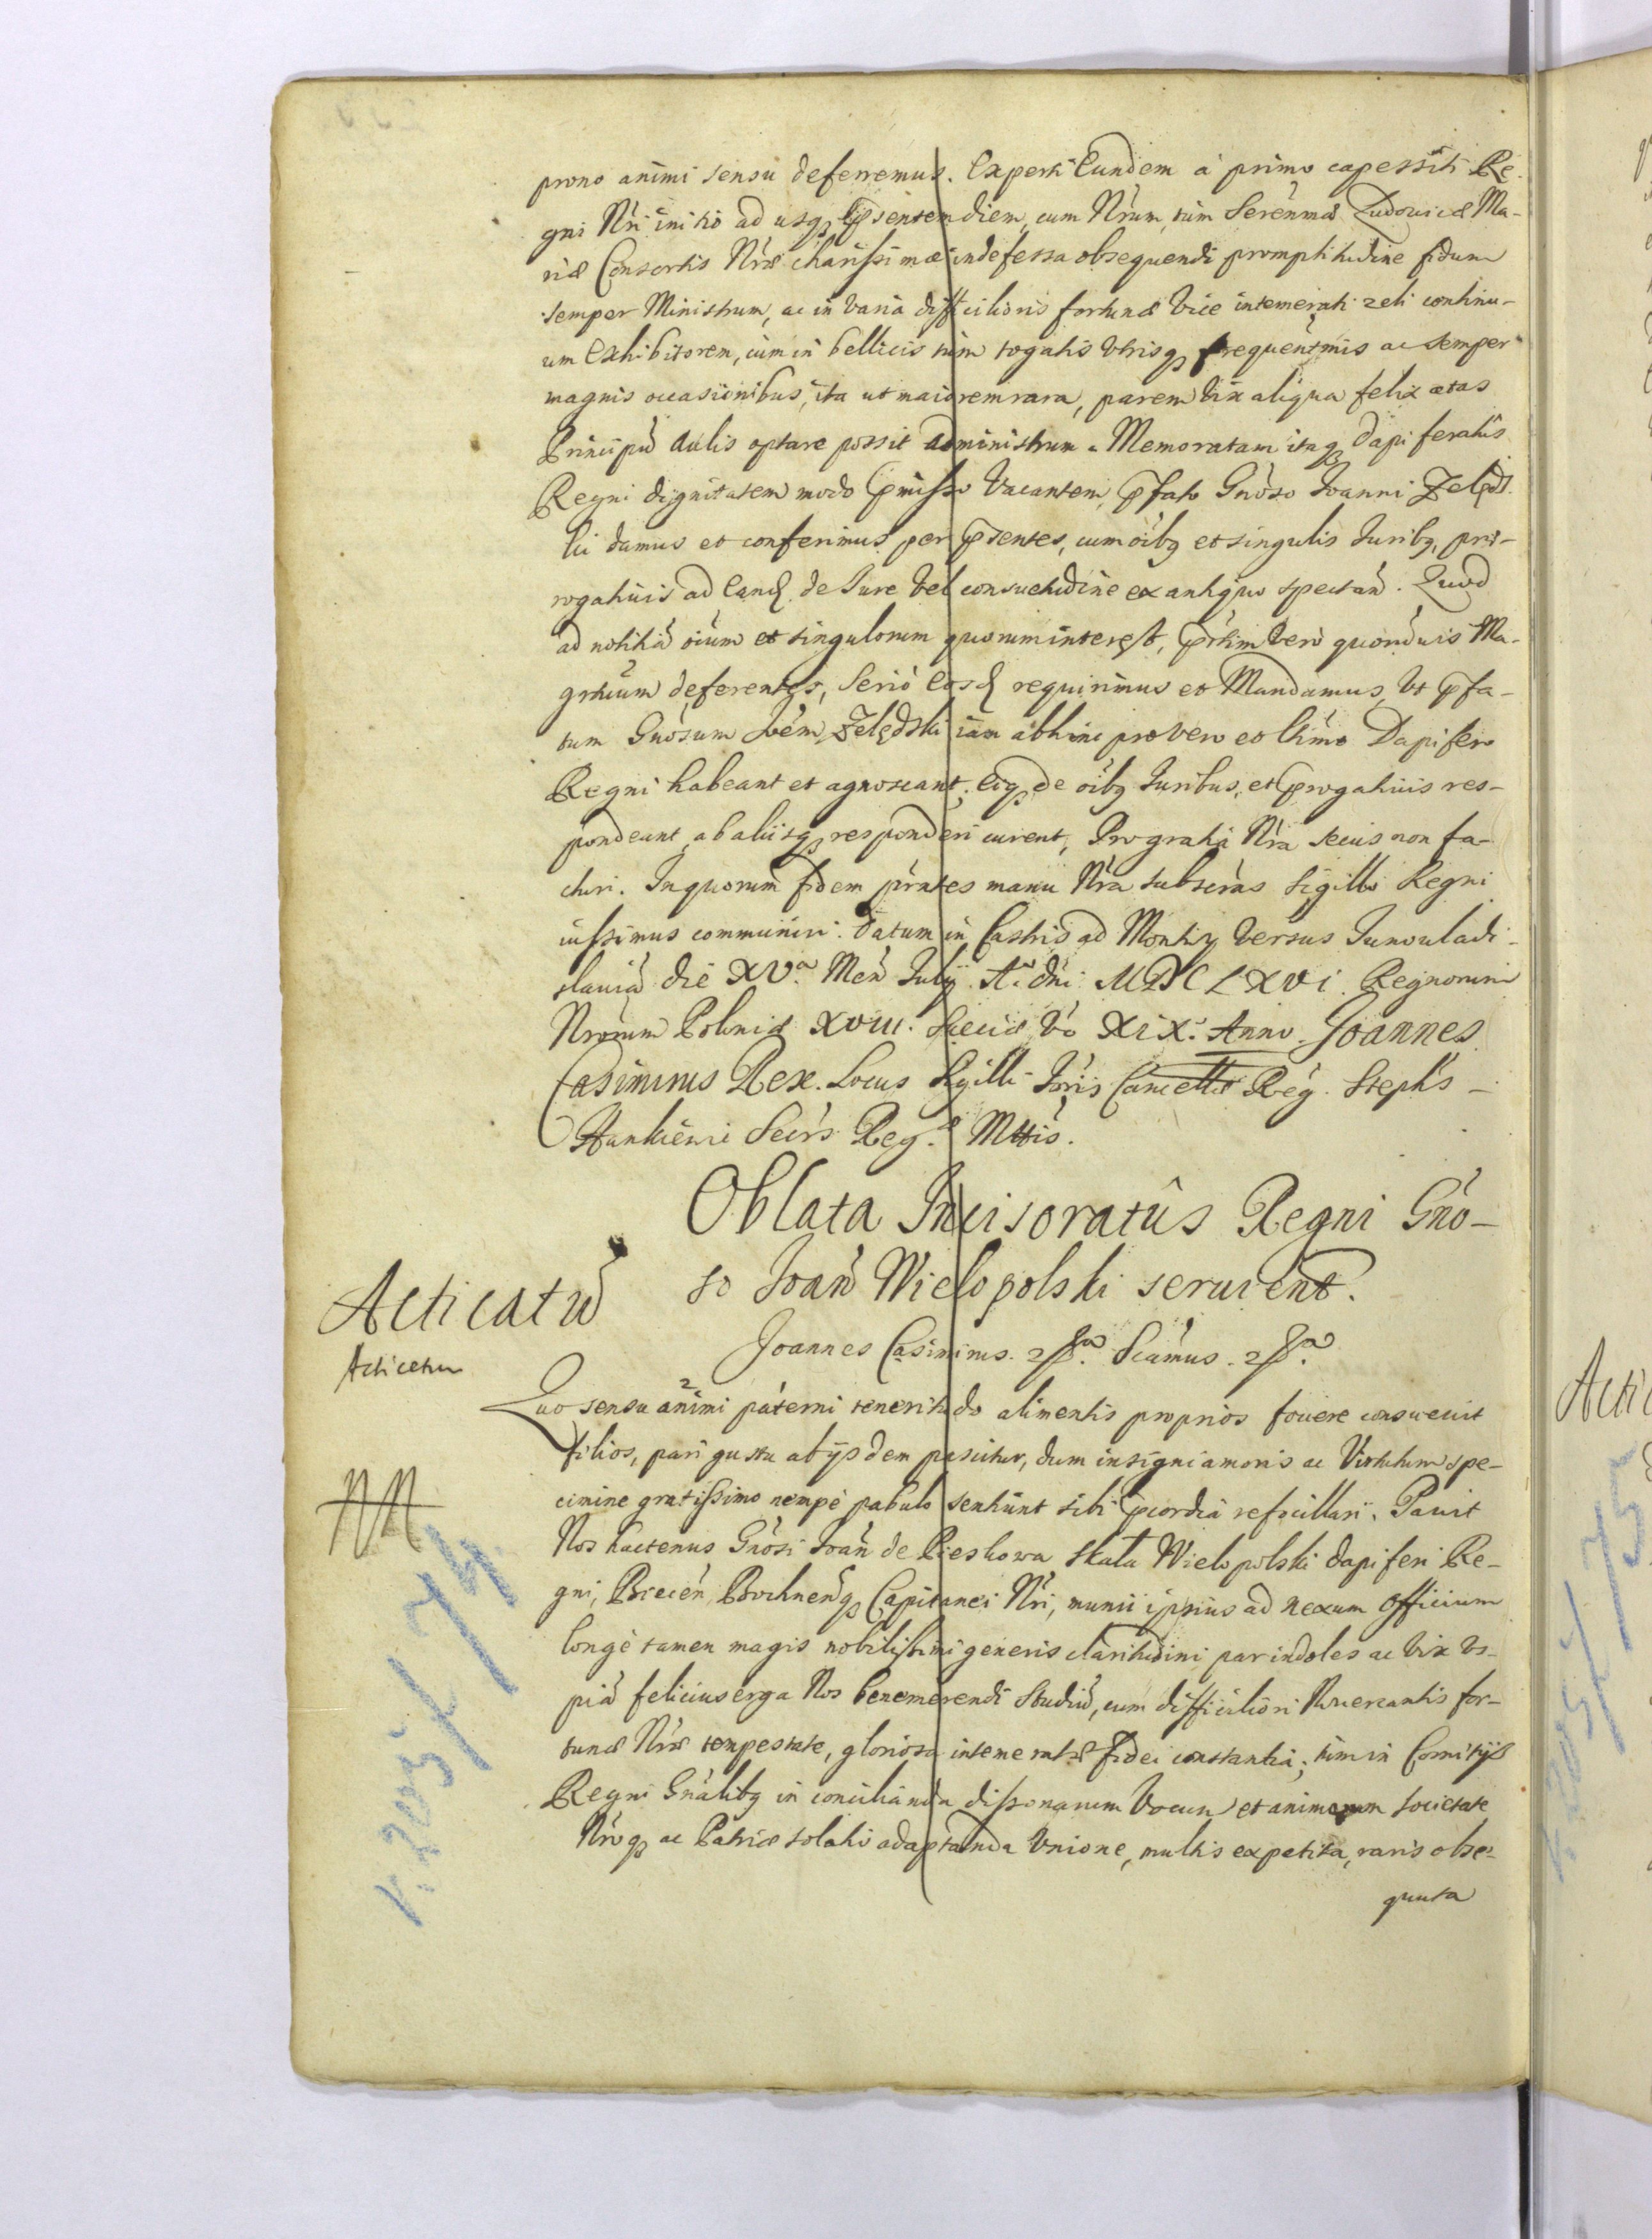 prono animi sensu deferremus. Experti Eundem à primo capessiti Re-
gni Nri initio ad usq; psentem diem, cum Nrum, tum Serenmæ Ludovicæ Ma-
riæ Consortis Nræ charissimæ indefessa obsequendi promptitudine fidum
semper Ministrum, ac in varia difficilioris fortunæ vice intemerati zeli continu-
um Exhibitorem, cùm in bellicis tùm togatis utrisq; frequentmis ac semper
magnis occasionibus, ita ut maiorem rara, parem vix aliqua felix ætas
Principũ Aulis optare possit administrum. Memoratam itaq; Dapiferatûs
Regni dignitatem modo pmisso vacantem, pfato Gnoso Joanni Zelęds-
ki damus et conferimus per psentes, cum oibq et singulis Juribq, prę-
rogativis ad Eand. de Jure vel consuetudine ex antiquo spectañ. Quod
ad notitiã oium et singulorum quorum interest, prtim vero quorũvis Ma-
grtuum deferentes, seriò Eosd requirimus et Mandamus, ut pfa-
tum Gnosum Joem Zelędski iam abhinc pro vero et ltimo Dapifero
Regni habeant et agnoscant, eiq; de oibq Juribus, et progativis res-
pondeant, ab aliisq; responderi curent, Pro gratia Nra secus non fa-
cturi. In quorum fidem prntes manu Nra subscras Sigillo Regni
iussimus communiri. Datum in Castris ad Montwy versus Junouladi-
slauiã die XVa. Meñ July Ao. dni MDCLXVI. Regnorum
Nrorum Poloniæ XVIII. Sueciæ vo XIX. Anno. Joannes
Casimirus Rex. Locus Sigilli Joris Cancellæ Reg. Stephs
Hankiewi Secrs Reg.æ Mttis.
Oblata Incisoratûs Regni Gno-
so Joañ Wielopolski seruient.
Acticatũ
Acticetur
Joannes Casimirus. Sciamus.
Quo sensu animi paterni teneritudo alimentis proprios fouere consueuit
filios, pari gustu ab ijsdem pascitur, dum insigni amoris ac Virtutum spe-
cimine gratissimo nempè pabulo sentiunt sibi pcordia refocillari. Pauit
Nos hactenus Gnosi Joañ de Pieskowa Skała Wielopolski Dapiferi Re-
gni, Biecen, Bochnenq; Capitanei Nri, munii ipsius ad nexum officium
longè tamen magis nobilissimi generis claritudini par indoles ac vix us-
piã felicius erga Nos benemerendi Studiũ, cum difficiliori Nouercantis for-
tunæ Nræ tempestate, gloriosa intemeratæ fidei constantia; tùm in Comitijs
Regni Gnalibq in concilianda dissonarum Vocum et animorum societate
Nroq; ac Patriæ solatio adaptanda Unione, multis expetita, raris obse-
quuta